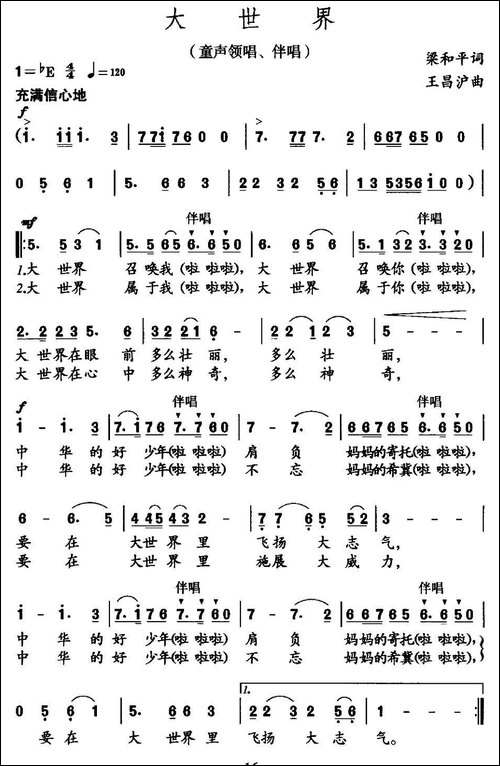 大 世 界
（童声领唱、伴唱）
1=♭E 4/4 ♩=120
梁和平词
王昌沪曲
充满信心地
f
(i· i i i· 3 7 7 i 7 6 0 0 7· 7 7 7 0 6 6 7 6 5 0 0
0 5 6 1 5· 6 6 3 2 2 3 2 5 6 1 3 5 3 5 6 i 0 0)
mf 伴唱 伴唱
5· 5 3 1 5· 5 6 5 6· 6 5 0 6· 6 5 6 5· 1 3 2 3· 3 2 0
1.大 世界 召唤我(啦 啦啦), 大 世界 召唤你(啦 啦啦),
2.大 世界 属于我(啦 啦啦), 大 世界 属于你(啦 啦啦),
2· 2 2 3 5· 6 3 2 2 1 6 - 2 2 1 2 3 5 -
大 世界在眼 前多么壮 丽, 多么 壮 丽,
大 世界在心 中多么神 奇, 多么 神 奇,
f 伴唱 伴唱
i - i· 3 7· i 7 6 7· 7 6 0 7 - 7· 2 6 6 7 6 5 6· 5 0
中 华 的 好 少年(啦 啦啦) 肩 负 妈妈的寄托(啦啦啦),
中 华 的 好 少年(啦 啦啦) 不 忘 妈妈的希冀(啦啦啦),
6 - 6· 5 4 4 5 4 3 2 - 7 7 6 5 5 2 3 -
要 在 大世界里 飞扬 大志 气,
要 在 大世界里 施展 大威 力,
伴唱 伴唱
i - i· 3 7· i 7 6 7· 7 6 0 7 - 7· 2 6 6 7 6 5 6· 5 0
中 华 的 好 少年(啦 啦啦) 肩 负 妈妈的寄托(啦啦啦),
中 华 的 好 少年(啦 啦啦) 不 忘 妈妈的希冀(啦啦啦),
1.
0 5 6 1 5· 3 2 2 3 2 5 6 1 - - -
要 在 大 世 界里 飞扬 大志 气。